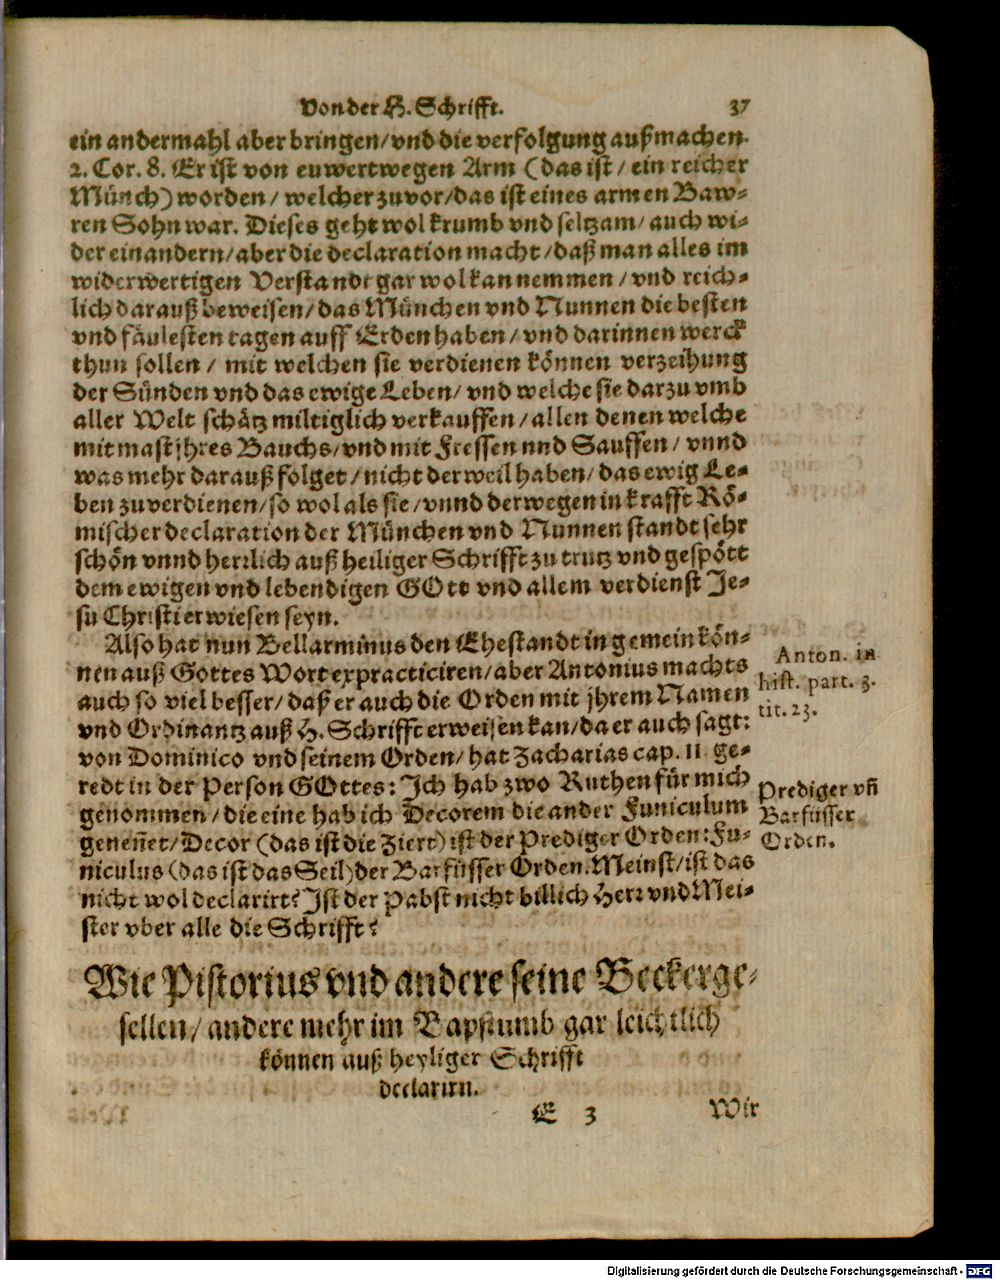 Von der H. Schrifft. 37
ein andermahl aber bringen/ vnd die verfolgung außmachen.
2. Cor. 8. Er ist von euwertwegen Arm (das ist/ ein reicher
Münch) worden/ welcher zuvor/ das ist eines armen Baw-
ren Sohn war. Dieses geht wol krumb vnd seltzam/ auch wi-
der einandern/ aber die declaration macht/ daß man alles im
widerwertigen Verstandt gar wol kan nemmen/ vnd reich-
lich darauß beweisen/ das München vnd Nunnen die besten
vnd fäulesten tagen auff Erden haben/ vnd darinnen werck
thun sollen/ mit welchen sie verdienen können verzeihung
der Sünden vnd das ewige Leben/ vnd welche sie darzu vmb
aller Welt schätz miltiglich verkauffen/ allen denen welche
mit mast jhres Bauchs/ vnd mit Fressen nnd Sauffen/ vnnd
was mehr darauß folget/ nicht der weil haben/ das ewig Le-
ben zu verdienen/ so wol als sie/ vnnd derwegen in krafft Rö-
mischer declaration der München vnd Nunnen standt sehr
schön vnnd herrlich auß heiliger Schrifft zu trutz vnd gespött
dem ewigen vnd lebendigen GOtt vnd allem verdienst Je-
su Christi erwiesen seyn.
Also hat nun Bellarminus den Ehestandt in gemein kön-
nen auß Gottes Wort expracticiren/ aber Antonius machts
auch so viel besser/ daß er auch die Orden mit jhrem Namen
vnd Ordinantz auß H. Schrifft erweisen kan/ da er auch sagt:
von Dominico vnd seinem Orden/ hat Zacharias cap. 11 ge-
redt in der Person GOttes: Ich hab zwo Ruthen für mich
genommen/ die eine hab ich Decorem die ander Funiculum
geneñet/ Decor (das ist die Ziert) ist der Prediger Orden: Fu-
niculus (das ist das Seil) der Barfüsser Orden. Meinst/ ist das
nicht wol declarirt? Ist der Pabst nicht billich Herr vnd Mei-
ster vber alle die Schrifft?
Anton. in
hist. part. 3.
tit. 23.
Prediger vñ
Barfüsser
Orden.
Wie Pistorius vnd andere seine Beckerge-
sellen/ andere mehr im Bapstumb gar leichtlich
können auß heyliger Schrifft
declarirn.
E 3 Wir
Digitalisierung gefördert durch die Deutsche Forschungsgemeinschaft - DFG